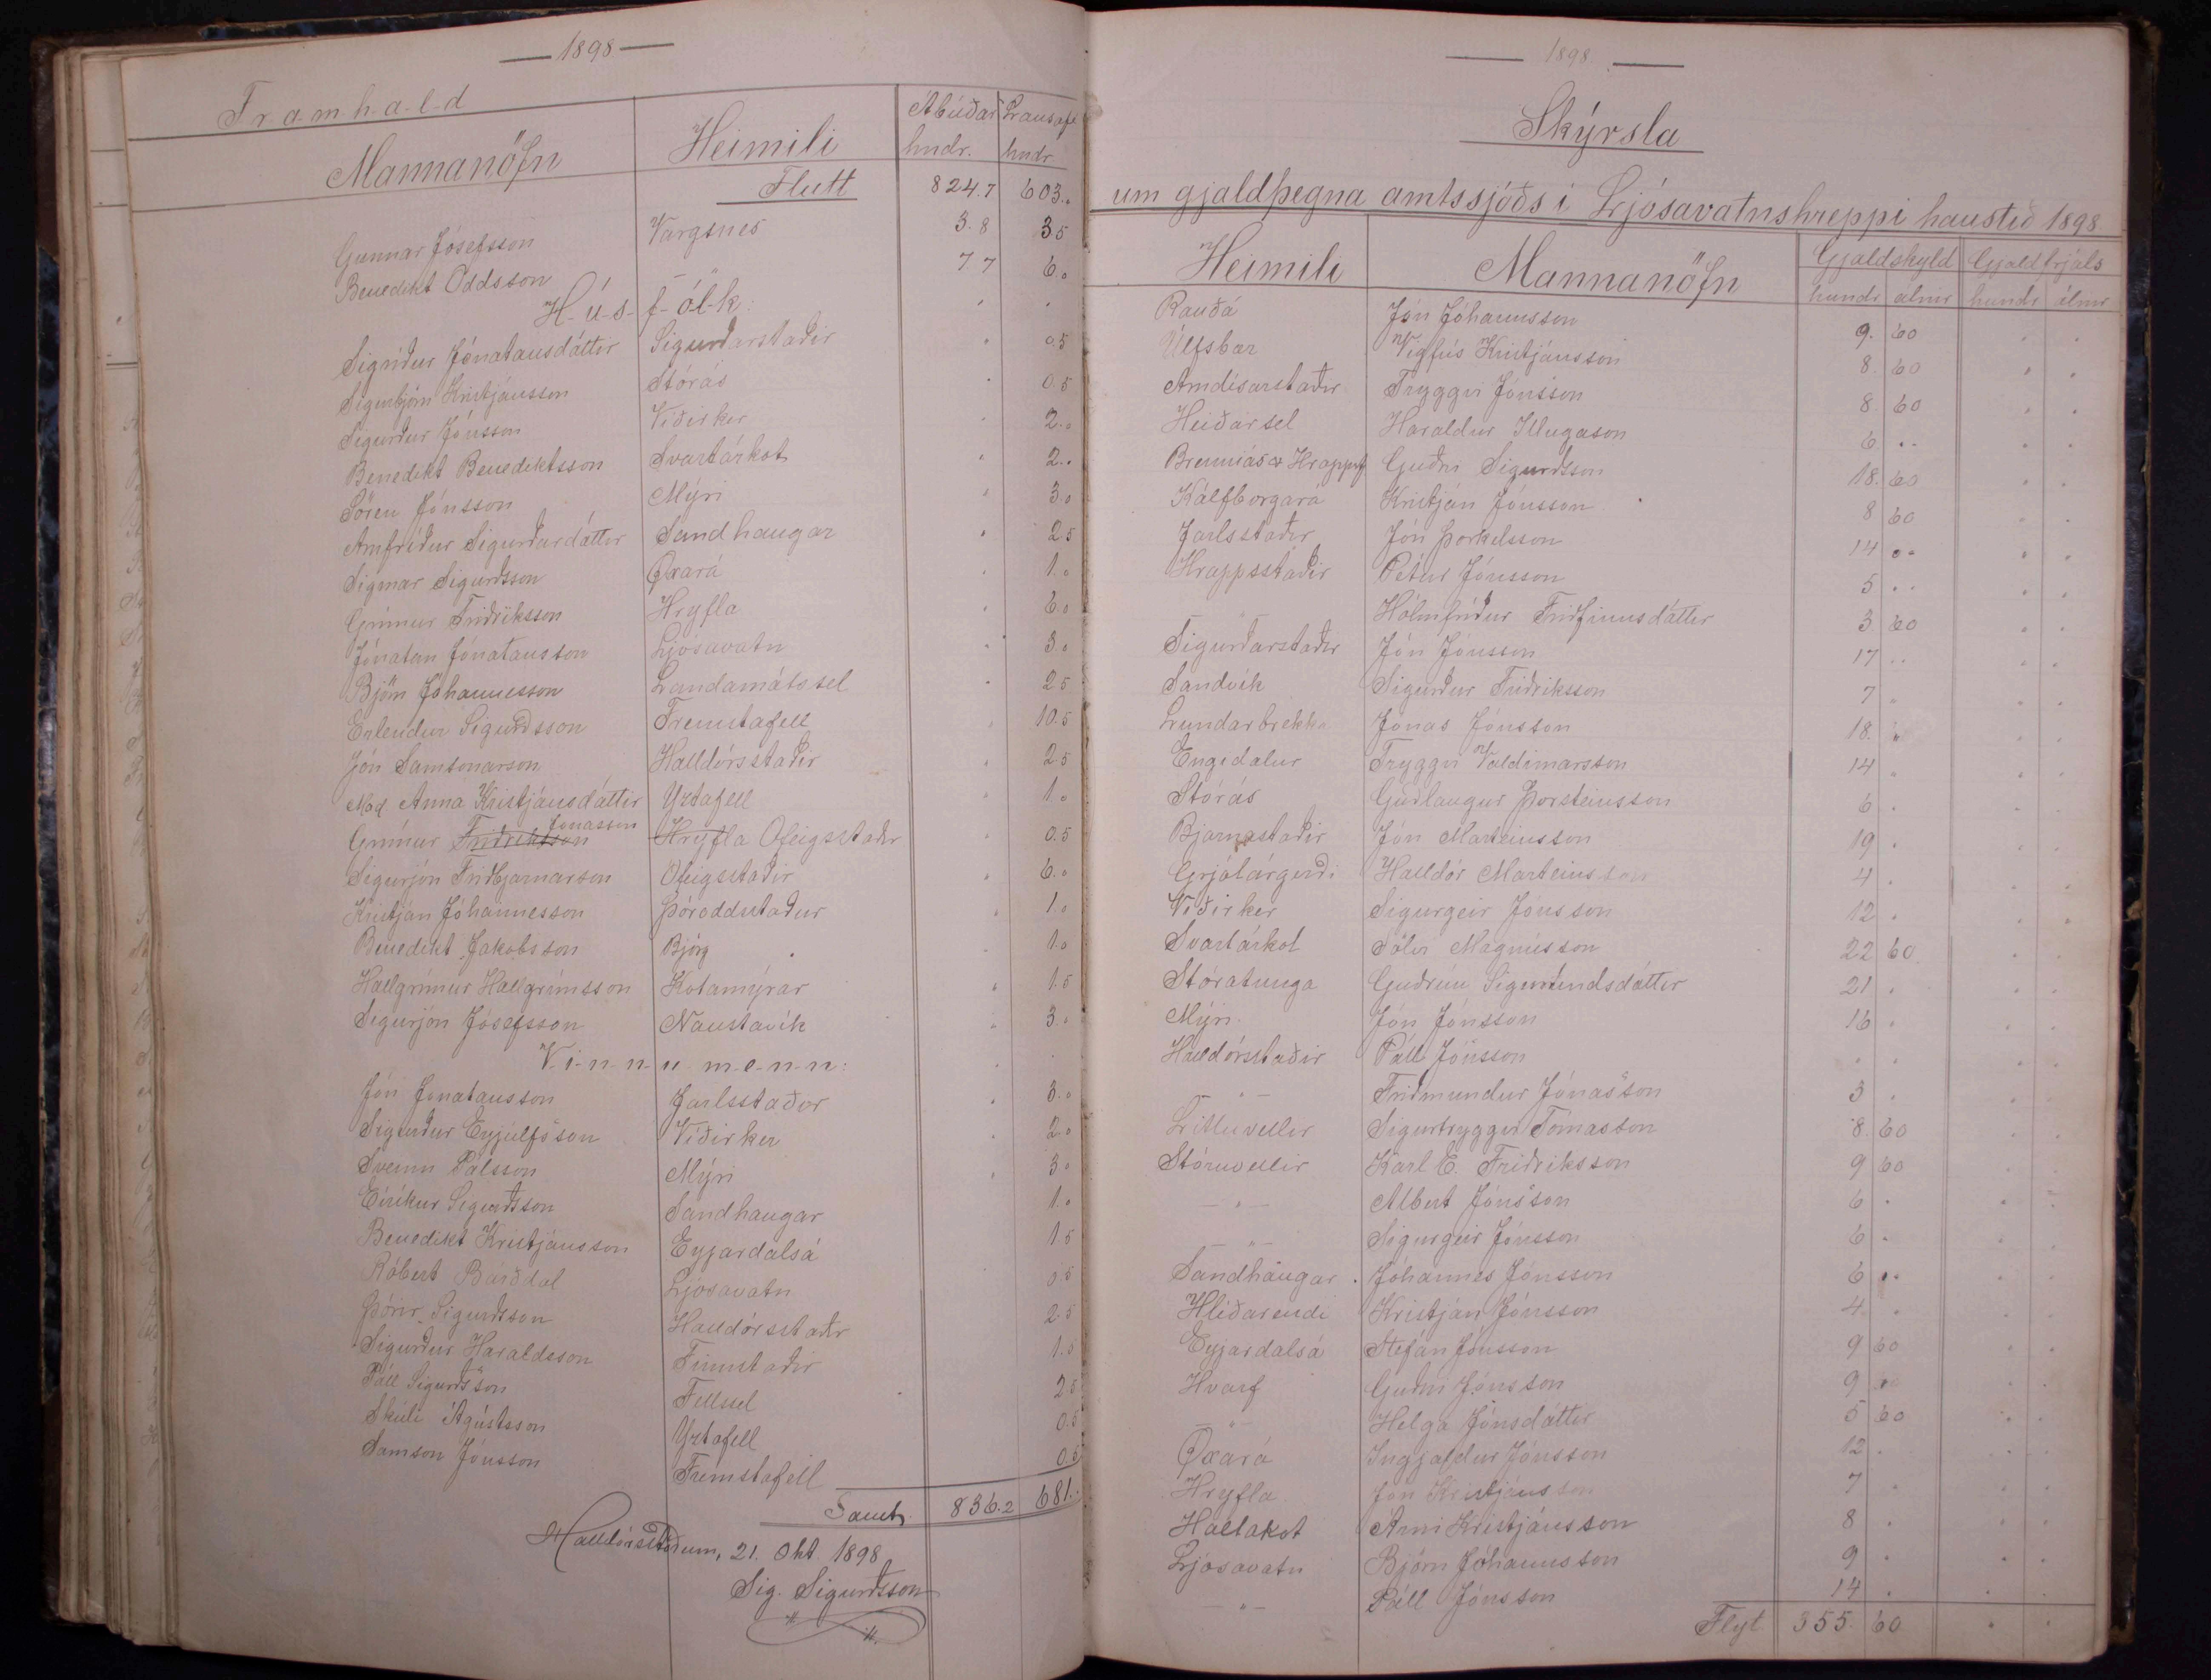 — 1898 —
Framhald
Mannanöfn Heimili Ábúðar hndr. Lausafj. hndr
Flutt 824.7 603.
Gunnar Jósefsson Vargsnes 3.8 3.5
Benedikt Oddsson 7 7 6.0
Húsfólk:
Sigríður Jónatansdóttir Sigurðarstaðir 0.5
Sigurbjörn Kristjánsson Stórás 0.5
Sigurður Jónsson Víðirker 2.0
Benedikt Benediktsson Svartárkot 2..
Sören Jónsson Mýri 3.0
Arnfríður Sigurðardóttir Sandhaugar 2 5
Sigmar Sigurðsson Øxará 1.0
Grímur Friðriksson Hryfla 6.0
Jónatan Jónatansson Ljósavatn 3.0
Björn Jóhannesson Landamótssel 2 5
Erlendur Sigurðsson Fremstafell 10.5
Jón Samsonarson Halldórsstaðir 2 5
Mad. Anna Kristjánsdóttir Yztafell 1.0
Grímur Friðriksson Jónasson Hryfla Ófeigsstaðir 0.5
Sigurjón Friðbjarnarson Ófeigsstaðir 6.0
Kristján Jóhannesson Þóroddsstaður 1.0
Benedikt Jakobsson Björg 1.0
Hallgrímur Hallgrímsson Kotamýrar 1.5
Sigurjón Jósefsson Naustavík 3.0
Vinnumenn:
Jón Jónatansson Jarlsstaðir 3.0
Sigurður Eyjúlfsson Víðirker 2.0
Sveinn Pálsson Mýri 3.0
Eiríkur Sigurðsson Sandhaugar 1.0
Benedikt Kristjánsson Eyjardalsá 1 5
Róbert Bárðdal Ljósavatn 0.5
Þórir Sigurðsson Halldórsstaðir 2.5
Sigurður Haraldsson Finnstaðir 1.5
Páll Sigurðsson Fellssel 2 5
Skúli Ágústsson Yztafell 0.5
Samson Jónsson Fremstafell 0.5
Samt. 836.2 681..
Halldórsstöðum, 21. Okt. 1898
Sig. Sigurðsson
— 1898. —
Skýrsla
um gjaldþegna amtssjóðs í Ljósavatnshreppi haustið 1898
Heimili Mannanöfn Gjaldskyld hundr álnir Gjaldfrjáls hundr álnir
Rauðá Jón Jóhannsson 9. 60
Úlfsbær Vigfús Kristjánsson 8. 60
Arndísarstaðir Tryggvi Jónsson 8. 60
Heiðarsel Haraldur Illugason 6 ..
Brenniás & Hrappst Guðni Sigurðsson 18. 60
Kálfborgará Kristján Jónsson 8 60
Jarlsstaðir Jón Þorkelsson 14 ..
Hrappsstaðir Pétur Jónsson 5 ..
Hólmfríður Friðfinnsdóttir 3 60
Sigurðarstaðir Jón Jónsson 17 ..
Sandvík Sigurður Friðriksson 7 "
Lundarbrekka Jónas Jónsson 18. "
Engidalur Tryggvi Valdimarsson 14 .
Stórás Guðlaugur Þorsteinsson 6 .
Bjarnastaðir Jón Marteinsson 19 .
Grjótárgerði Halldór Marteinsson 4 .
Víðirker Sigurgeir Jónsson 12 .
Svartárkot Sölvi Magnússon 22 60
Stóratunga Guðrún Sigmundsdóttir 21 .
Mýri Jón Jónsson 16 .
Halldórsstaðir Páll Jónsson . .
— " — Friðmundur Jónasson 3 .
Litluvellir Sigurtryggvi Tómasson 8. 60
Stóruvellir Karl E. Friðriksson 9 60
— " — Albert Jónsson 6 .
— " — Sigurgeir Jónsson 6 .
Sandhaugar Jóhannes Jónsson 6 ..
Hlíðarendi Kristján Jónsson 4 .
Eyjardalsá Stefán Jónsson 9 60
Hvarf Guðni Jónsson 9 .
— " — Helga Jónsdóttir 5 60
Øxará Ingjaldur Jónsson 12 .
Hryfla Jón Kristjánsson 7 .
Hallakot Árni Kristjánsson 8 .
Ljósavatn Björn Jóhannsson 9 .
— " — Páll Jónsson 14 .
Flyt 355. 60